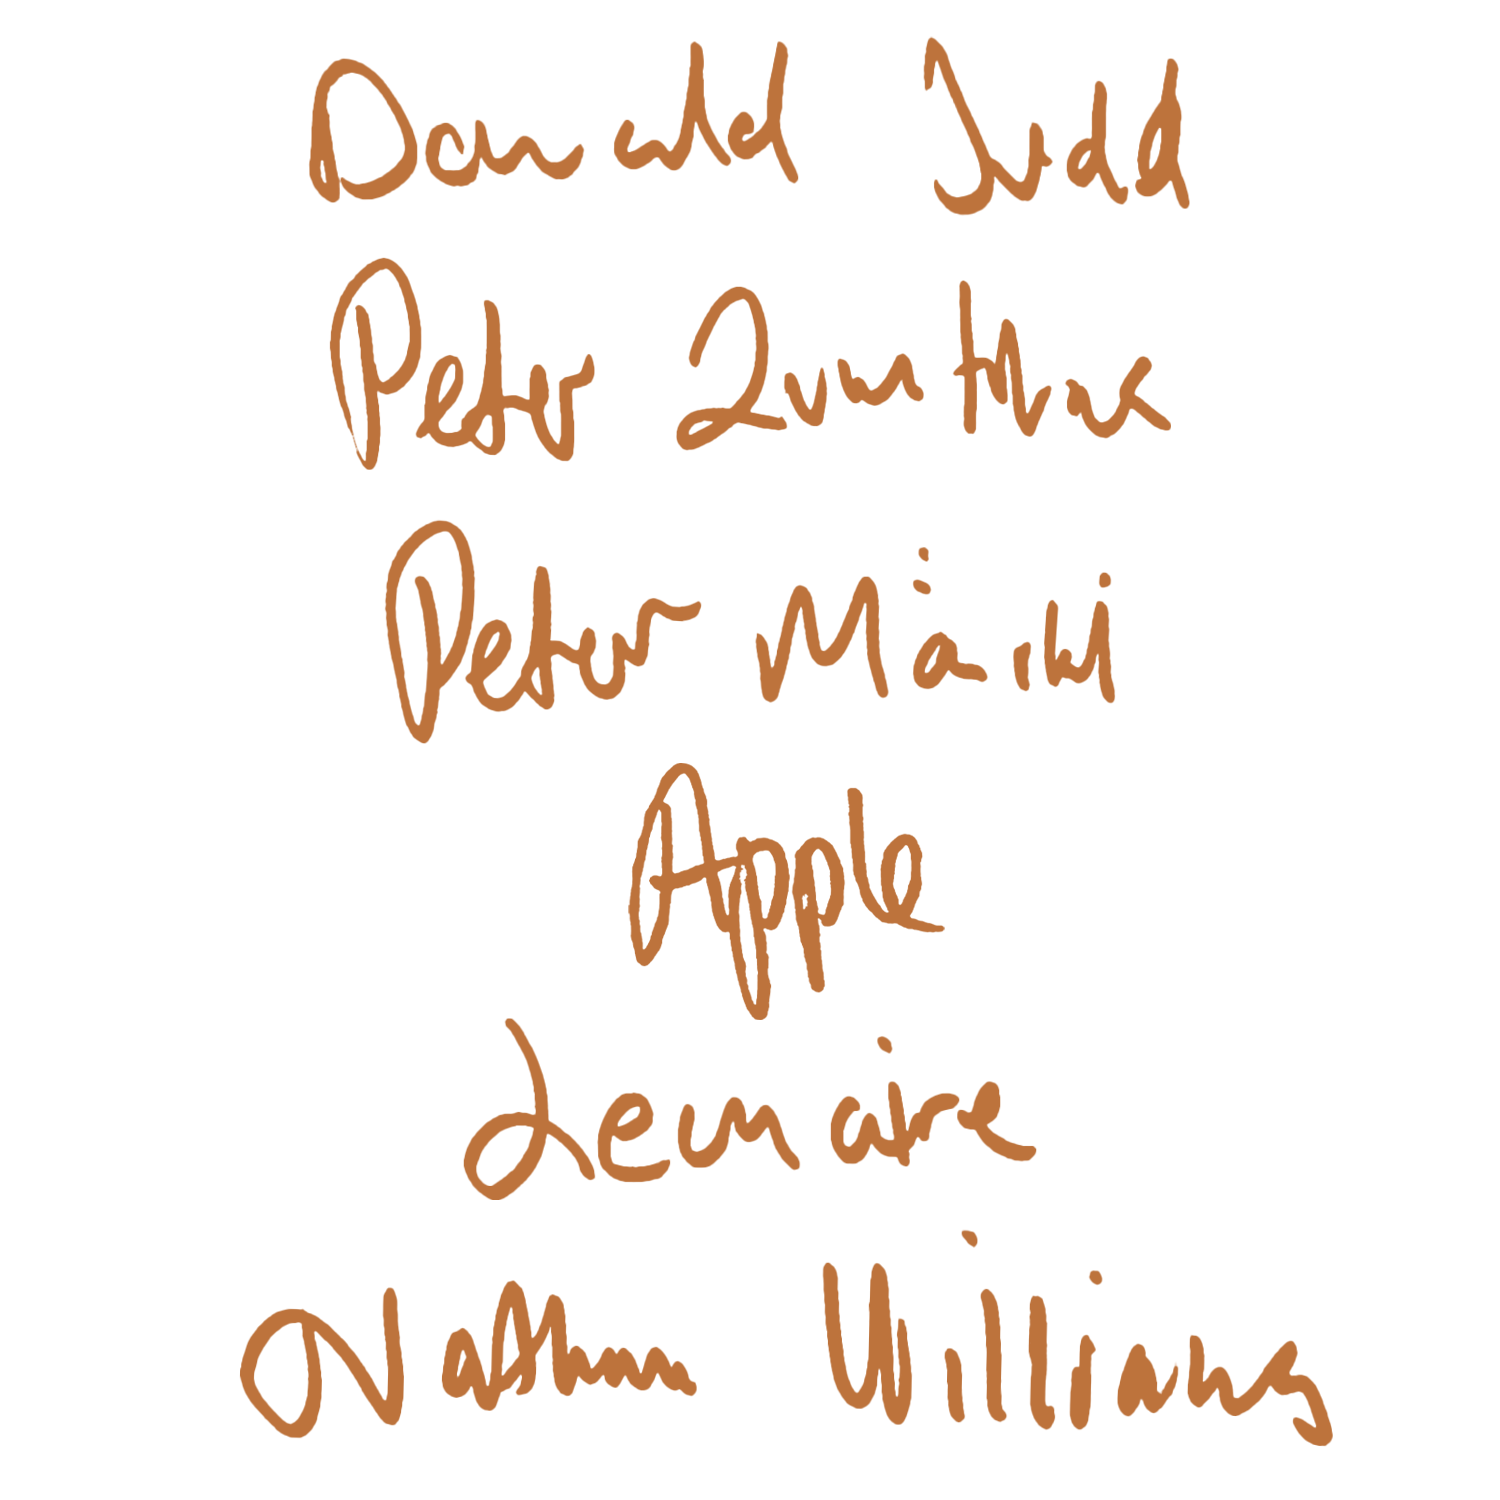 Donald Judd
Peter Zumthor
Peter Märkli
Apple
Lemaire
Nathan Williams